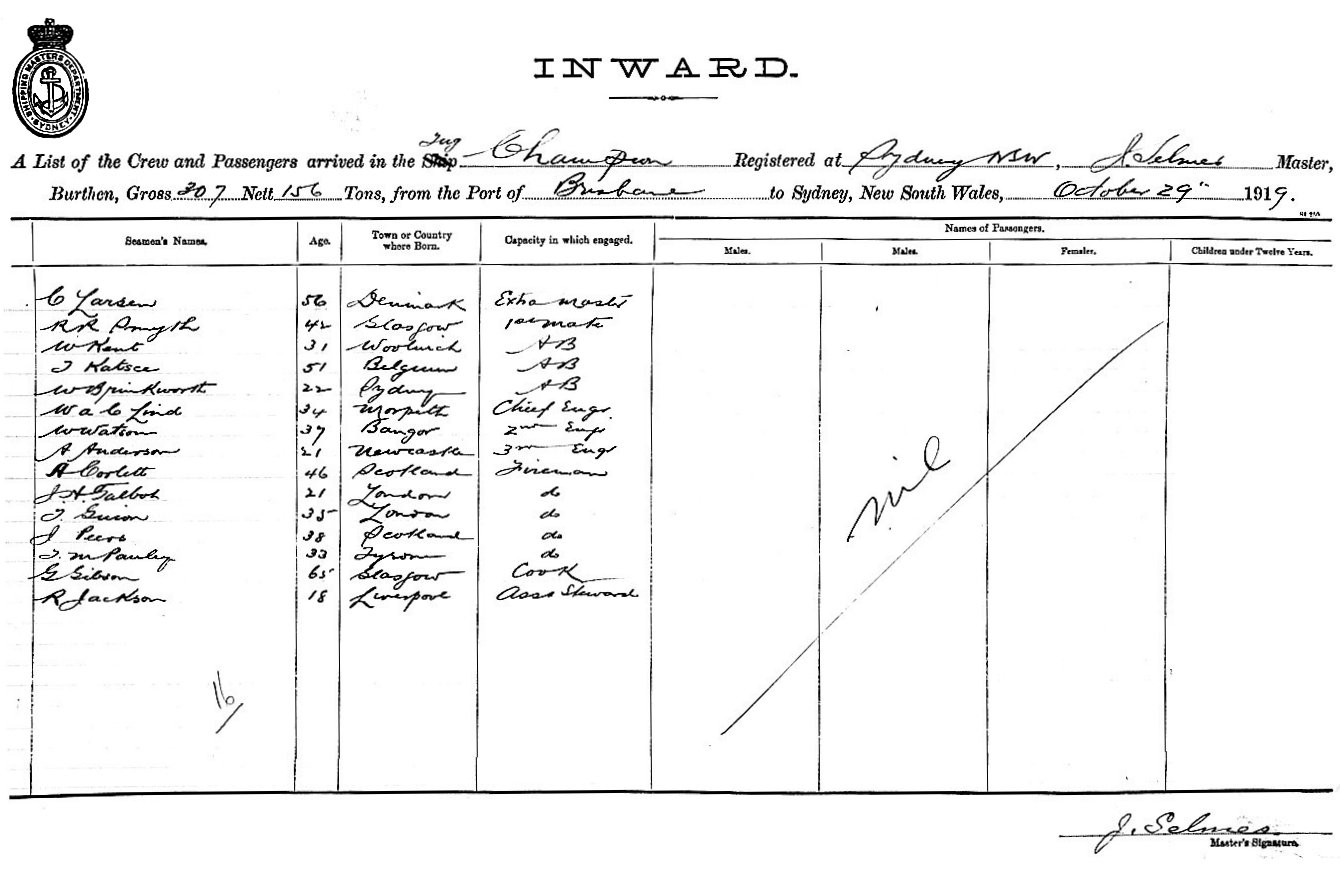 SHIPPING MASTERS DEPARTMENT
SYDNEY
INWARD.
Tug
A List of the Crew and Passengers arrived in the Ship Champion Registered at Sydney NSW, J. Selmes Master,
Burthen, Gross 307 Nett 156 Tons, from the Port of Brisbane to Sydney, New South Wales, October 29" 1919.
Seamen's Names. Age. Town or Country where Born. Capacity in which engaged. Names of Passengers.
Males. Males. Females. Children under Twelve Years.
C Larsen 56 Denmark Extra master
R R Smyth 42 Glasgow 1st mate
W Kent 31 Woolwich AB
51 Belgium AB
W Brinkworth 22 Sydney AB
W A C Lind 34 Morpeth Chief Engr.
W Watson 37 Bangor 2nd Engr
A Anderson 21 Newcastle 3rd Engr
A Corlett 46 Scotland Fireman
J. H. Talbot 21 London do
T. Guion 35 London do
J Peers 38 Scotland do
T. McPauley 33 Tyrone do
G Gibson 65 Glasgow Cook
R Jackson 18 Liverpool Asst Steward
nil
16
J. Selmes
Master's Signature.